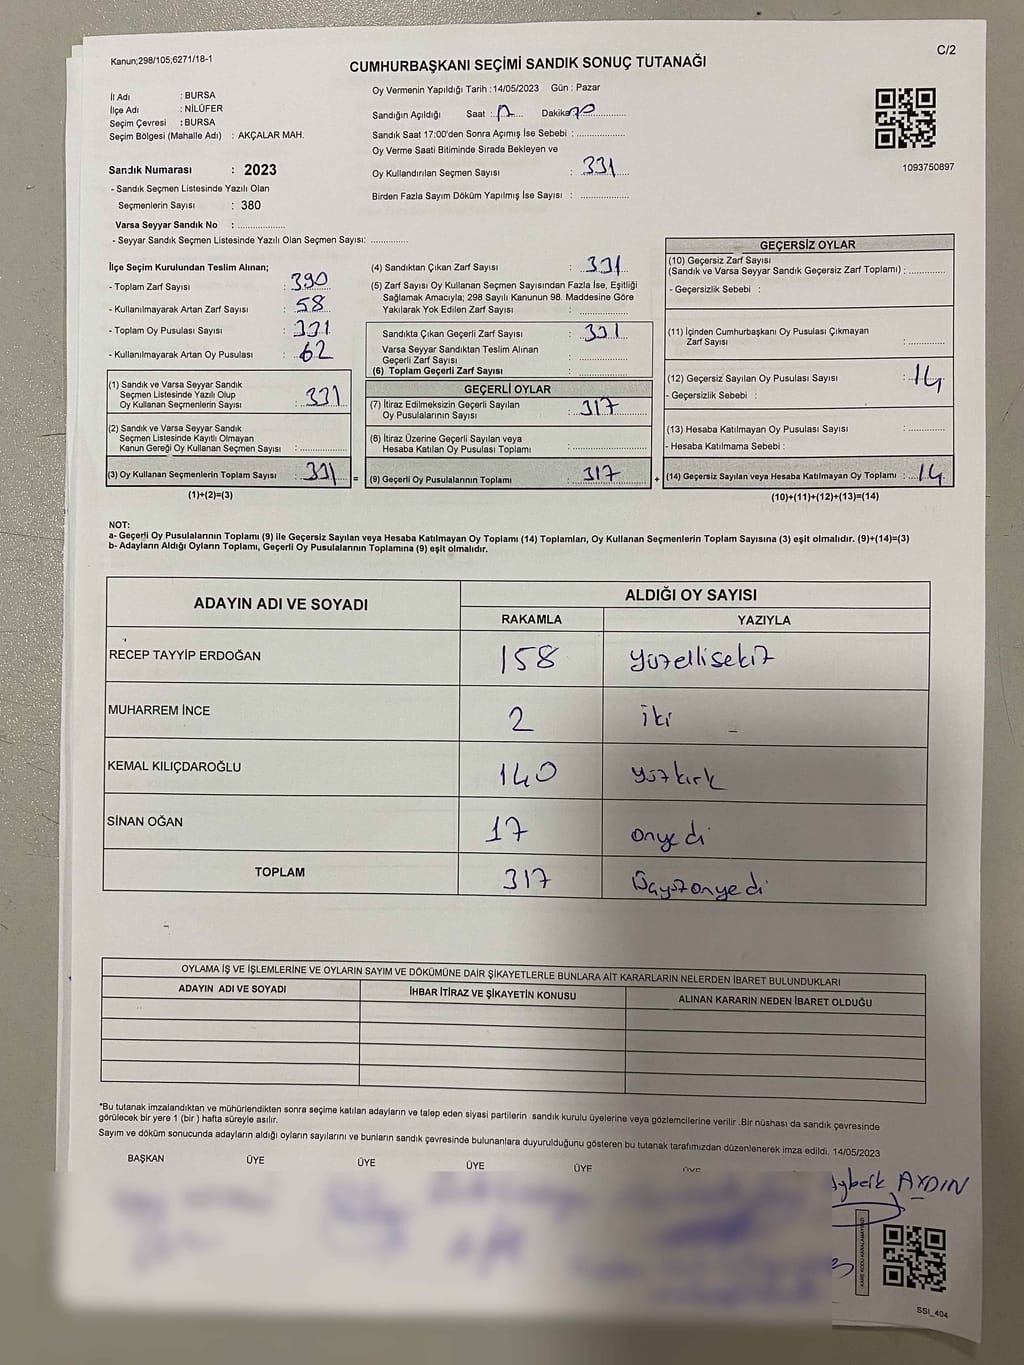 Kanun;298/105;6271/18-1
C/2
CUMHURBAŞKANI SEÇİMİ SANDIK SONUÇ TUTANAĞI
İl Adı : BURSA
İlçe Adı : NİLÜFER
Seçim Çevresi : BURSA
Seçim Bölgesi (Mahalle Adı) : AKÇALAR MAH.
Sandık Numarası : 2023
- Sandık Seçmen Listesinde Yazılı Olan
Seçmenlerin Sayısı : 380
Varsa Seyyar Sandık No : ..............
- Seyyar Sandık Seçmen Listesinde Yazılı Olan Seçmen Sayısı: ............
Oy Vermenin Yapıldığı Tarih : 14/05/2023 Gün : Pazar
Sandığın Açıldığı Saat : Dakika
Sandık Saat 17:00'den Sonra Açımış İse Sebebi : ..............
Oy Verme Saati Bitiminde Sırada Bekleyen ve
Oy Kullandırılan Seçmen Sayısı : 331
Birden Fazla Sayım Döküm Yapılmış İse Sayısı : ..............
1093750897
İlçe Seçim Kurulundan Teslim Alınan;
- Toplam Zarf Sayısı : 390
- Kullanılmayarak Artan Zarf Sayısı : 58
- Toplam Oy Pusulası Sayısı : 331
- Kullanılmayarak Artan Oy Pusulası : 62
(1) Sandık ve Varsa Seyyar Sandık
Seçmen Listesinde Yazılı Olup
Oy Kullanan Seçmenlerin Sayısı : 331
(2) Sandık ve Varsa Seyyar Sandık
Seçmen Listesinde Kayıtlı Olmayan
Kanun Gereği Oy Kullanan Seçmen Sayısı : ..............
(3) Oy Kullanan Seçmenlerin Toplam Sayısı : 331 =
(1)+(2)=(3)
(4) Sandıktan Çıkan Zarf Sayısı : 331
(5) Zarf Sayısı Oy Kullanan Seçmen Sayısından Fazla İse, Eşitliği
Sağlamak Amacıyla; 298 Sayılı Kanunun 98. Maddesine Göre
Yakılarak Yok Edilen Zarf Sayısı : ..............
Sandıkta Çıkan Geçerli Zarf Sayısı : 331
Varsa Seyyar Sandıktan Teslim Alınan
Geçerli Zarf Sayısı : ..............
(6) Toplam Geçerli Zarf Sayısı : ..............
GEÇERLİ OYLAR
(7) İtiraz Edilmeksizin Geçerli Sayılan
Oy Pusulalarının Sayısı : 317
(8) İtiraz Üzerine Geçerli Sayılan veya
Hesaba Katılan Oy Pusulaları Toplamı : ..............
(9) Geçerli Oy Pusulalarının Toplamı : 317 +
GEÇERSİZ OYLAR
(10) Geçersiz Zarf Sayısı
(Sandık ve Varsa Seyyar Sandık Geçersiz Zarf Toplamı) : ............
- Geçersizlik Sebebi :
(11) İçinden Cumhurbaşkanı Oy Pusulası Çıkmayan
Zarf Sayısı : ............
(12) Geçersiz Sayılan Oy Pusulası Sayısı : 14
- Geçersizlik Sebebi :
(13) Hesaba Katılmayan Oy Pusulası Sayısı : ............
- Hesaba Katılmama Sebebi :
(14) Geçersiz Sayılan veya Hesaba Katılmayan Oy Toplamı : 14
(10)+(11)+(12)+(13)=(14)
NOT:
a- Geçerli Oy Pusulalarının Toplamı (9) ile Geçersiz Sayılan veya Hesaba Katılmayan Oy Toplamı (14) Toplamları, Oy Kullanan Seçmenlerin Toplam Sayısına (3) eşit olmalıdır. (9)+(14)=(3)
b- Adayların Aldığı Oyların Toplamı, Geçerli Oy Pusulalarının Toplamına (9) eşit olmalıdır.
ADAYIN ADI VE SOYADI ALDIĞI OY SAYISI
RAKAMLA YAZIYLA
RECEP TAYYİP ERDOĞAN 158 yüzellisekiz
MUHARREM İNCE 2 iki
KEMAL KILIÇDAROĞLU 140 yüzkırk
SİNAN OĞAN 17 onyedi
TOPLAM 317 üçyüzonyedi
OYLAMA İŞ VE İŞLEMLERİNE VE OYLARIN SAYIM VE DÖKÜMÜNE DAİR ŞİKAYETLERLE BUNLARA AİT KARARLARIN NELERDEN İBARET BULUNDUKLARI
ADAYIN ADI VE SOYADI İHBAR İTİRAZ VE ŞİKAYETİN KONUSU ALINAN KARARIN NEDEN İBARET OLDUĞU
*Bu tutanak imzalandıktan ve mühürlendikten sonra seçime katılan adayların ve talep eden siyasi partilerin sandık kurulu üyelerine veya gözlemcilerine verilir .Bir nüshası da sandık çevresinde
görülecek bir yere 1 (bir ) hafta süreyle asılır.
Sayım ve döküm sonucunda adayların aldığı oyların sayılarını ve bunların sandık çevresinde bulunanlara duyurulduğunu gösteren bu tutanak tarafımızdan düzenlenerek imza edildi. 14/05/2023
BAŞKAN ÜYE ÜYE ÜYE ÜYE ÜYE
AYDIN
SSI_404